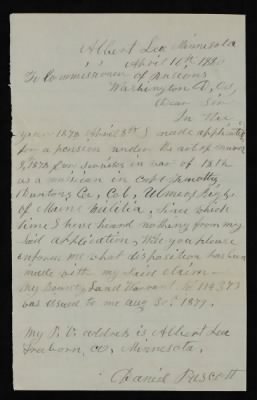 Albert Lea, Minnesota
" " April 10th 188
To Commissioner of Pensions
Washington D, C,
Dear Sir
In the
year 1878 April 5th I made application
for a pension under the act of March
9, 1878 for services in war of 1812
as a musician in Capt Timothy
Co, Col, Ulmers Regt
of Maine Militia, Since which
time I have heard nothing from my
said application, Will you please
inform me what disposition has been
made with my said claim—
My Bounty Land Warrant No 114373
was issued to me Aug 30th 1877.
My P.O. address is Albert Lea
Freeborn, Co, Minnesota,
Daniel Prescott